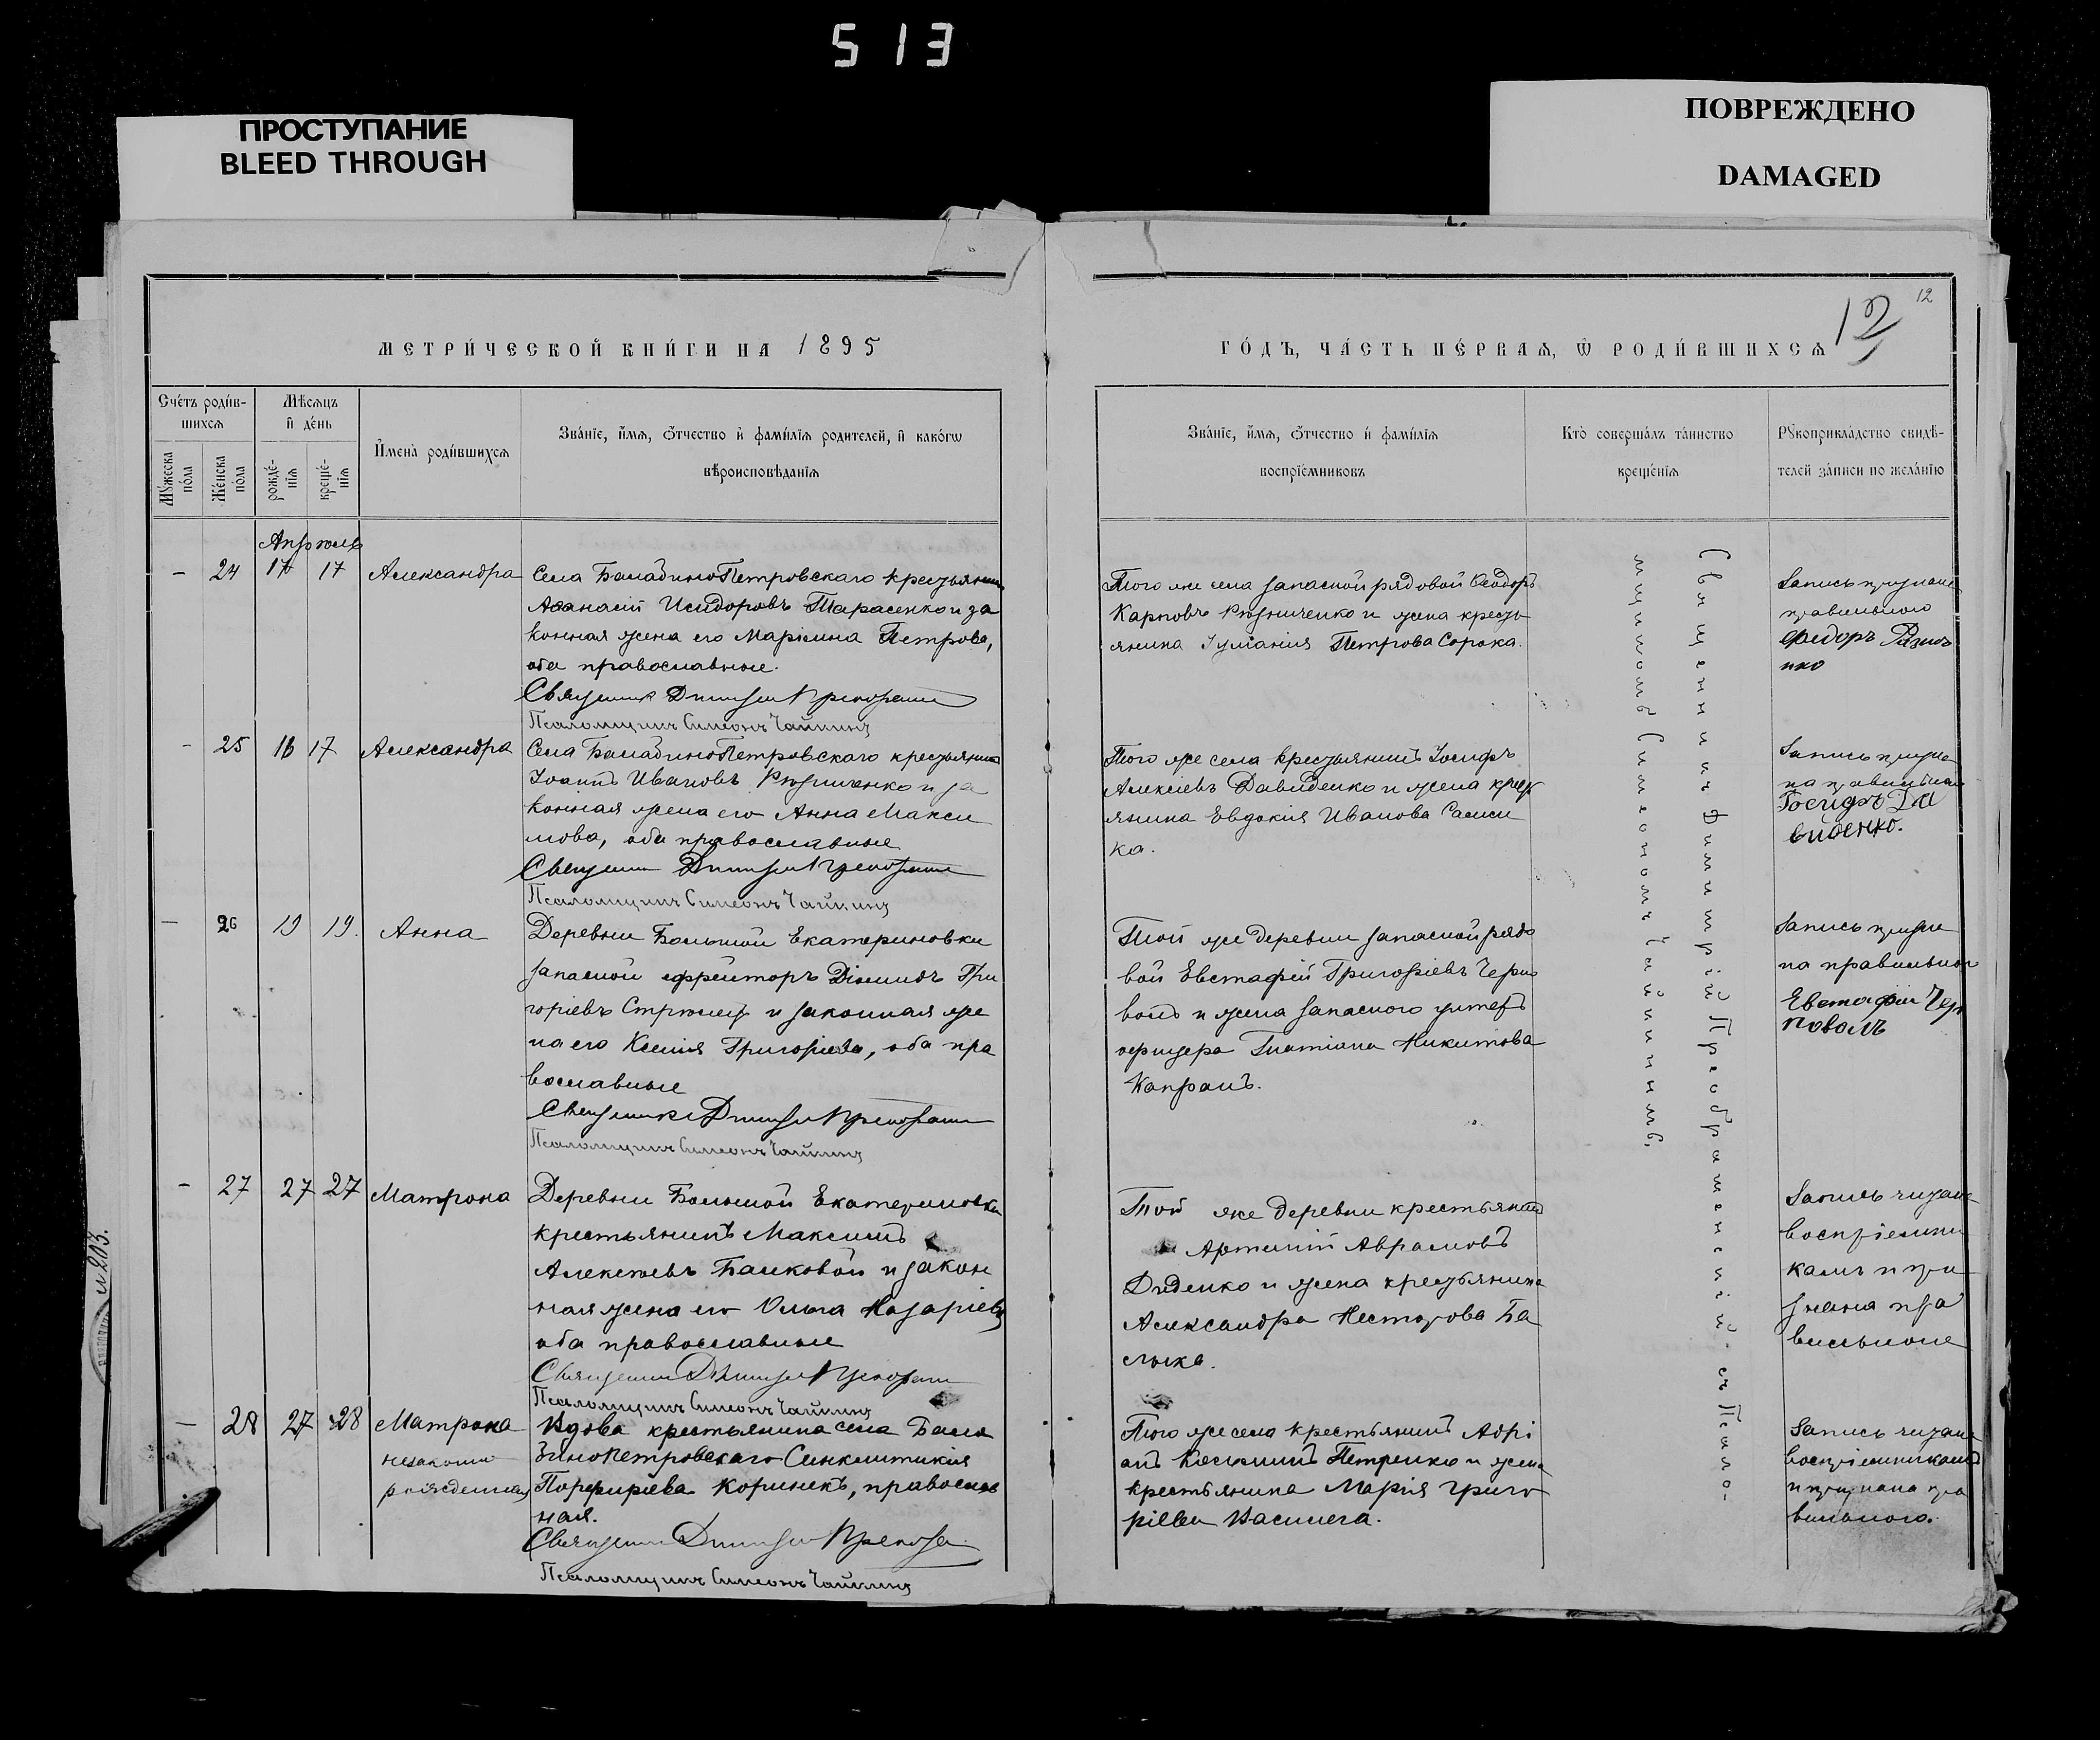 513
ПРОСТУПАНИЕ
BLEED THROUGH
ПОВРЕЖДЕНО
DAMAGED
12
12
МЕТРИ́ЧЕСКОЙ КНИ́ГИ НА 1895
ГО́ДЪ, ЧА́СТЬ ПЕ́РВАѦ, Ѡ РОДИ́ВШИХСѦ
Сче́тъ роди́в-
шихсѧ
Мѣсѧцъ
и҆ де́нь
Мꙋ́жеска
по́ла
Же́нска
по́ла
рожде́-
нїѧ
креще́-
нїѧ
И҆мена̀ роди́вшихсѧ
Зва́нїе, и҆́мѧ, ѻ҆́тчество и҆ фами́лїѧ родителей, и҆ како́гѡ
вѣроисповѣданїѧ
Зва́нїе, и҆́мѧ, ѻ҆́тчество и҆ фами́лїѧ
воспрїе́мниковъ
Кто̀ соверша́лъ та́инство
креще́нїѧ
Рꙋкоприкла́дство свидѣ́-
телей за́писи по жела́нїю
Апрѣль
- 24 17 17 Александра
Села БаладиноПетровскаго крестьянинъ
Аѳанасій Исидоровъ Тарасенко и за
конная жена его Петрова,
оба православные.
Священникъ Димитрій
Псаломщикъ Симеонъ Чайкинъ
Того же села запасной рядовой Ѳеодоръ
Карповъ Рѣзниченко и жена кресть
янина Іуліанія Петрова Сорока.
Запись признана
правильною
Федоръ
- 25 16 17 Александра
Села БаладиноПетровскаго крестьянинъ
Іоаннъ Ивановъ Рѣзниченко и за
конная жена его Анна Макси
мова, оба православные
Священникъ Димитрій
Псаломщикъ Симеонъ Чайкинъ
Того же села крестьянинъ Іосифъ
Алексіевъ Давиденко и жена крест
янина Евдокія Иванова
ка.
Запись призна
на правильною
Іосифъ Да
виденко.
- 26 19 19. Анна
Деревни Большой Екатериновки
запасной ефрейторъ Діомидъ Гри
горіевъ Стрѣлецъ и законная же
на его Ксенія Григоріева, оба пра
вославные
Священникъ Димитрій
Псаломщикъ Симеонъ Чайкинъ
Той же деревни запасной рядо
вой Евстафій Григоріевъ Черно
волъ и жена запасного унтеръ
офицера Татіана Никитова
Капранъ.
Запись призна
на правильною
Евстафій Чер
новолъ
- 27 27 27 Матрона
Деревни Большой Екатериновки
крестьянинъ Максимъ
Алексѣевъ Балковой и закон
ная жена его Ольга Назаріева
оба православные
Священникъ Димитрій
Псаломщикъ Симеонъ Чайкинъ
Той же деревни крестьянинъ
Артемій Аврамовъ
Диденко и жена крестьянина
Александра Несторова Ба
Запись читана
воспріемни
камъ и при
знана пра
вильною
- 28 27 28 Матрона
незаконно
рожденная
Вдова крестьянина села Бала
диноПетровскаго Синклитикія
Порфиріева Коринекъ, православ
ная.
Священникъ Димитрій
Псаломщикъ Симеонъ Чайкинъ
Того же села крестьянинъ Адрі
анъ Петренко и жена
крестьянина Марія Григо
ріева Василега.
Запись читана
воспріемникамъ
и признана пра
вильною.
Священникъ Димитрій Преображенскій съ Псало-
мщикомъ Симеономъ Чайкинымъ.